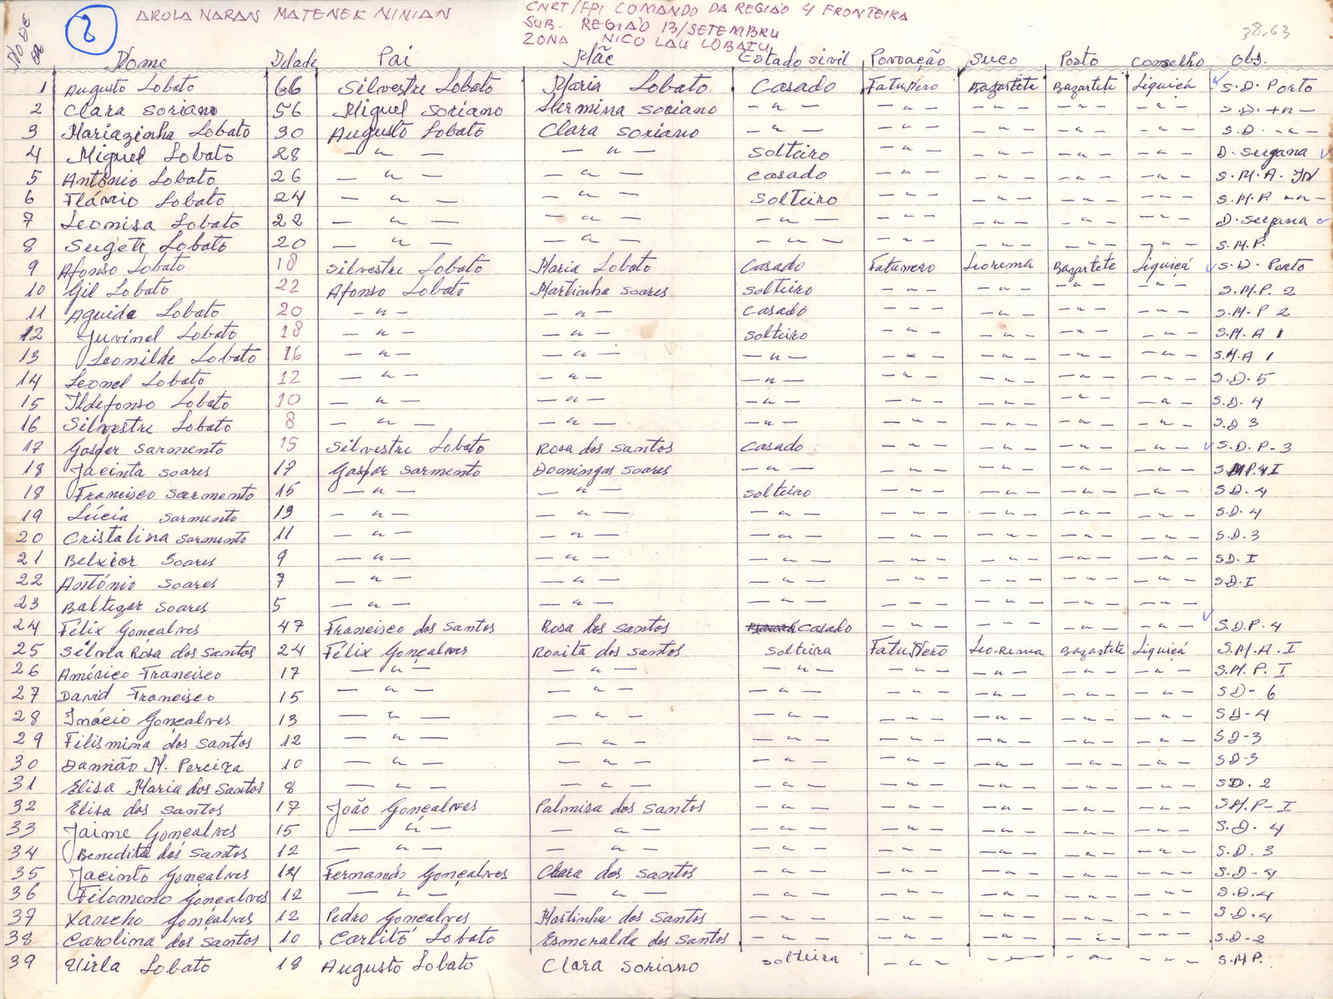 2
AROLA NARAN MATENEK NINIAN
CNRT/FPI COMANDO DA REGIÃO 4 FRONTEIRA
SUB. REGIÃO 13/SETEMBRU
ZONA NICO LAU LOBATU
38.63
Nome Idade Pai Mãe Estado sivil Povoação Suco Posto Conselho obs.
1 Augusto Lobato 66 Silvestre Lobato Maria Lobato Casado Fatunero Bazartete Bazartete Liquiçá S.D. Porto
2 Clara Soriano 56 Miguel Soriano Hermina Soriano — " — - " - - " - - " - - " - S.D.
3 Mariazinha Lobato 30 Augusto Lobato Clara Soriano — " — - " - - " - - " - - " - S.D. - " -
4 Miguel Lobato 28 — " — — " — Solteiro - " - - " - - " - - " - D. Sugana
5 António Lobato 26 — " — — " — Casado - " - - " - - " - - " - S.M.A. IN
6 Flávio Lobato 24 — " — — " — Solteiro - " - - " - - " - - " - S.M.P. - " -
7 Leonisa Lobato 22 — " — — " — — " — - " - - " - - " - - " - D. Sugana
8 Sugeti Lobato 20 — " — — " — — " — - " - - " - - " - - " - S.M.P.
9 Afonso Lobato 18 Silvestre Lobato Maria Lobato Casado Fatumero Leorema Bazartete Liquiçá S.D. Porto
10 Gil Lobato 22 Afonso Lobato Martinha Soares Solteiro - " - - " - - " - - " - S.M.P. 2
11 Aguida Lobato 20 - " - - " - Casado - " - - " - - " - - " - S.M.P 2
12 Juvinel Lobato 18 - " - - " - Solteiro - " - - " - - " - - " - S.M.A 1
13 Leonilde Lobato 16 - " - - " - - " - - " - - " - - " - - " - S.M.A 1
14 Leonel Lobato 12 — " — — " — - " - - " - - " - - " - - " - S.D.5
15 Ildefonso Lobato 10 — " — — " — - " - - " - - " - - " - - " - S.D. 4
16 Silvestre Lobato 8 — " — — " — - " - - " - - " - - " - - " - S.D 3
17 Gaspar Sarmento 15 Silvestre Lobato Rosa dos Santos Casado - " - - " - - " - - " - S.D.P-3
18 Jacinta Soares 17 Gaspar Sarmento Domingas Soares — " — - " - - " - - " - - " -
18 Francisco Sarmento 15 — " — — " — Solteiro - " - - " - - " - - " - S.D.4
19 Lúcia Sarmento 13 — " — — " — — " — - " - - " - - " - - " - S.D.4
20 Cristalina Sarmento 11 — " — — " — — " — - " - - " - - " - - " - S.D.3
21 Belxior Soares 9 — " — — " — — " — - " - - " - - " - - " - SD.I
22 António Soares 7 — " — — " — — " — - " - - " - - " - - " - S.D.I
23 Baltezar Soares 5 — " — — " — — " — - " - - " - - " - - " -
24 Félix Gonçalves 47 Francisco dos Santos Rosa dos Santos Casado - " - - " - - " - - " - S.D.P.4
25 Silvla Rosa dos Santos 24 Félix Gonçalves Ronita dos Santos Solteira Fatunero Leorema Bazartete Liquiçá S.M.A.I
26 Américo Francisco 17 — " — — " — — " — - " - - " - - " - - " - S.M.P.I
27 David Francisco 15 — " — — " — — " — - " - - " - - " - - " - SD- 6
28 Inácio Gonçalves 13 — " — — " — — " — - " - - " - - " - - " - SD-4
29 Filismina dos Santos 12 — " — — " — — " — - " - - " - - " - - " - SD-3
30 Damião M. Pereira 10 — " — — " — — " — - " - - " - - " - - " - SD-3
31 Elisa Maria dos Santos 8 — " — — " — — " — - " - - " - - " - - " - SD.2
32 Elisa dos Santos 17 João Gonçalves Palmisa dos Santos — " — - " - - " - - " - - " - S.M.P-I
33 Jaime Gonçalves 15 — " — — " — — " — - " - - " - - " - - " - S.D. 4
34 Benedita dos Santos 12 — " — — " — — " — - " - - " - - " - - " - S.D. 3
35 Jacinto Gonçalves 14 Fernando Gonçalves Clara dos Santos — " — - " - - " - - " - - " - S.D-4
36 Filomento Gonçalves 12 — " — — " — — " — - " - - " - - " - - " - S.D.4
37 Xancho Gonçalves 12 Pedro Gonçalves Martinha dos Santos — " — - " - - " - - " - - " - S.D.4
38 Carolina dos Santos 10 Carlitó Lobato Esmeralda dos Santos — " — - " - - " - - " - - " - S.D-2
39 Lobato 18 Augusto Lobato Clara Soriano Solteira - " - - " - - " - - " - S.M.P.